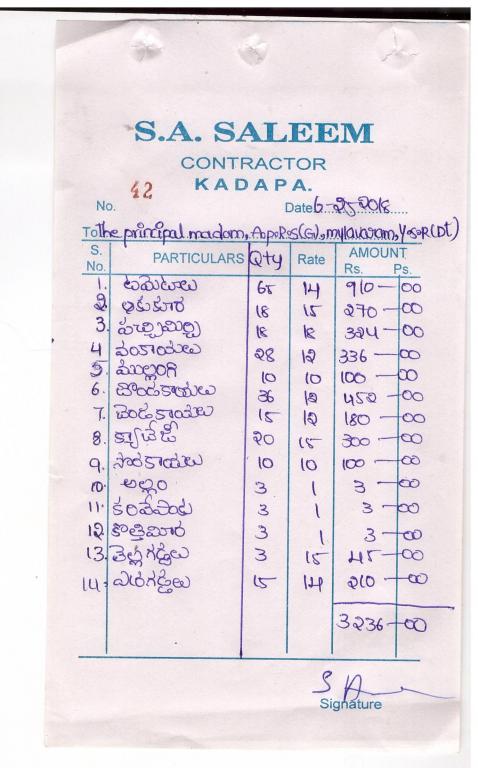 S.A. SALEEM
CONTRACTOR
KADAPA.
No. 42 Date 6-25-2018
To The principal madam, A.P.R.S(G), mylavaram, Y.S.R(Dt)
S. No. PARTICULARS Qty Rate AMOUNT Rs. Ps.
1. టమేటాలు 65 14 910-00
2. ఆకుకూర 18 15 270-00
3. పచ్చిమిర్చి 18 18 324-00
4 వంకాయలు 28 12 336-00
5. ముల్లంగి 10 10 100-00
6. దొండకాయలు 36 12 452-00
7. బెండకాయలు 15 12 180-00
8. క్యాబేజీ 20 15 300-00
9. సొరకాయలు 10 10 100-00
10. అల్లం 3 1 3-00
11. కరివేపాకు 3 1 3-00
12 కొత్తిమీర 3 1 3-00
13. తెల్లగడ్డలు 3 15 45-00
14. ఎర్రగడ్డలు 15 14 210-00
3236-00
Signature